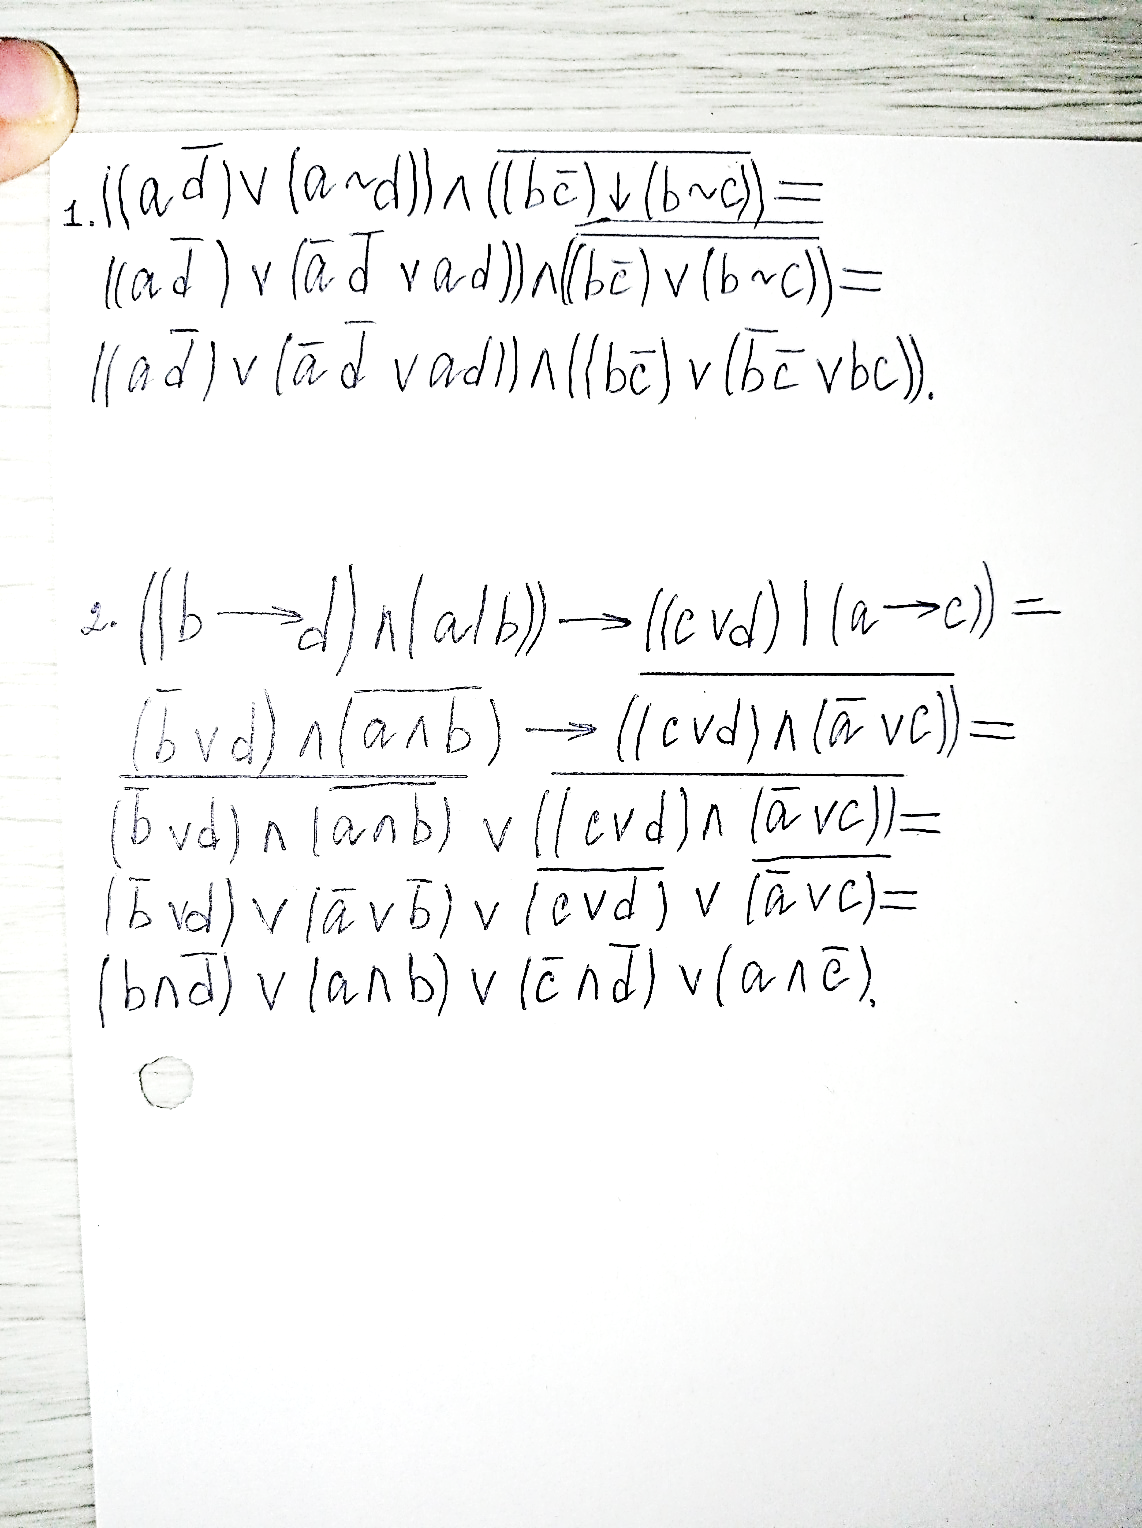 1. ((a d̅) ∨ (a ~ d)) ∧ \overline{((b c̅) ↓ (b ~ c))} =
((a d̅) ∨ (a̅ d̅ ∨ ad)) ∧ \overline{\overline{((b c̅) ∨ (b ~ c))}} =
((a d̅) ∨ (a̅ d̅ ∨ ad)) ∧ ((b c̅) ∨ (b̅ c̅ ∨ bc)).
2. ((b → d) ∧ (a | b)) → ((c ∨ d) | (a → c)) =
(b̅ ∨ d) ∧ (\overline{a ∧ b}) → \overline{((c ∨ d) ∧ (a̅ ∨ c))} =
\overline{(b̅ ∨ d) ∧ (\overline{a ∧ b})} ∨ \overline{((c ∨ d) ∧ (a̅ ∨ c))} =
(b̅ ∨ d) ∨ (a̅ ∨ b̅) ∨ (\overline{c ∨ d}) ∨ (\overline{a̅ ∨ c}) =
(b ∧ d̅) ∨ (a ∧ b) ∨ (c̅ ∧ d̅) ∨ (a ∧ c̅).